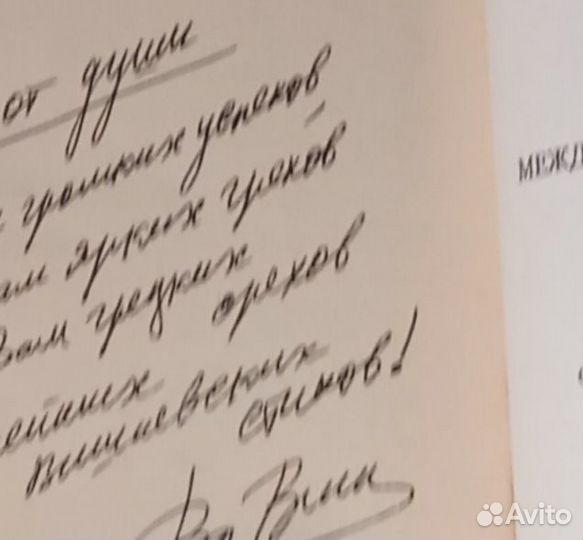 от души
громких успехов
ам ярких грехов
Вам грецких
орехов
ейших
Вишневских
стихов!
МЕЖД
Avito